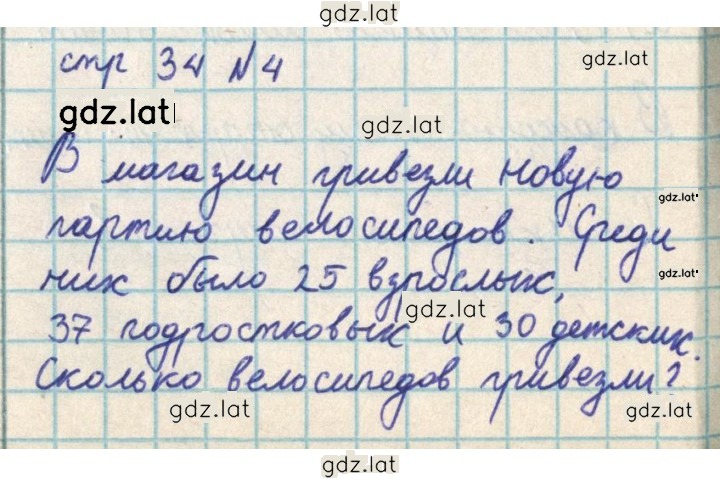 gdz.lat
стр 34 №4
gdz.lat
gdz.lat
gdz.lat
В магазин привезли новую
gdz.lat
партию велосипедов. Среди
них было 25 взрослых,
gdz.lat
gdz.lat
37 подростковых и 30 детских.
Сколько велосипедов привезли?
gdz.lat
gdz.lat
gdz.lat